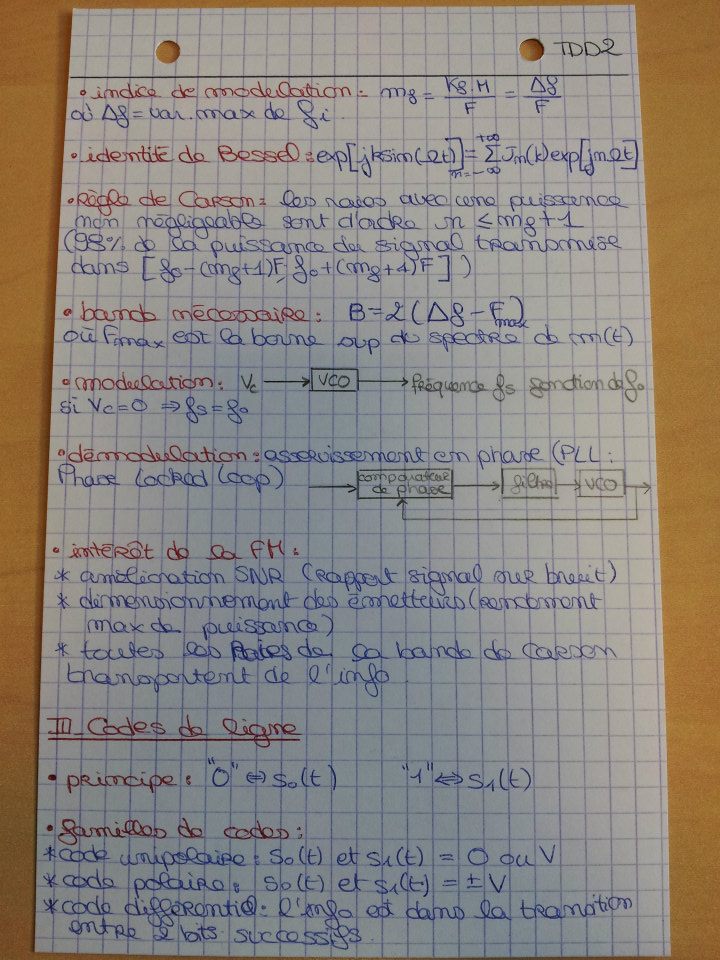 TDD2
• indice de modulation : mf = Kf.M/F = Δf/F
où Δf = var. max de fi
• identité de Bessel : exp[jksim(Ωt)] = Σ_{n=-∞}^{+∞} Jn(k) exp[jnΩt]
• règle de Carson : les raies avec une puissance
non négligeable sont d'ordre n ≤ mf+1
(98% de la puissance du signal transmise
dans [fo-(mf+1)F; fo+(mf+1)F])
• bande nécessaire : B = 2(Δf - Fmax)
où Fmax est la borne sup de spectre de m(t)
• modulation : Vc → VCO → fréquence fs fonction de fo
si Vc=0 ⇒ fs = fo
• démodulation : asservissement en phase (PLL :
Phase Locked Loop)
comparateur
de phase
filtre
VCO
• intérêt de la FM :
* amélioration SNR (rapport signal sur bruit)
* dimensionnement des émetteurs (rendement
max de puissance)
* toutes les raies de la bande de Carson
transportent de l'info
II_ Codes de ligne
• principe : "0" ⇔ S0(t) "1" ⇔ S1(t)
• familles de codes :
* code unipolaire : S0(t) et S1(t) = 0 ou V
* code polaire : S0(t) et S1(t) = ± V
* code différentiel : l'info est dans la transition
entre 2 bits successifs.